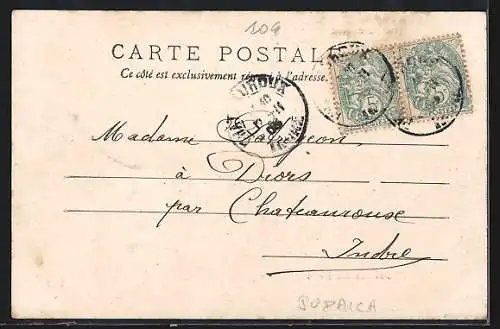 109
CARTE POSTALE
Ce côté est exclusivement réservé à l'adresse.
Madame
à Diors
par Chateauroux
Indre
JUDAICA